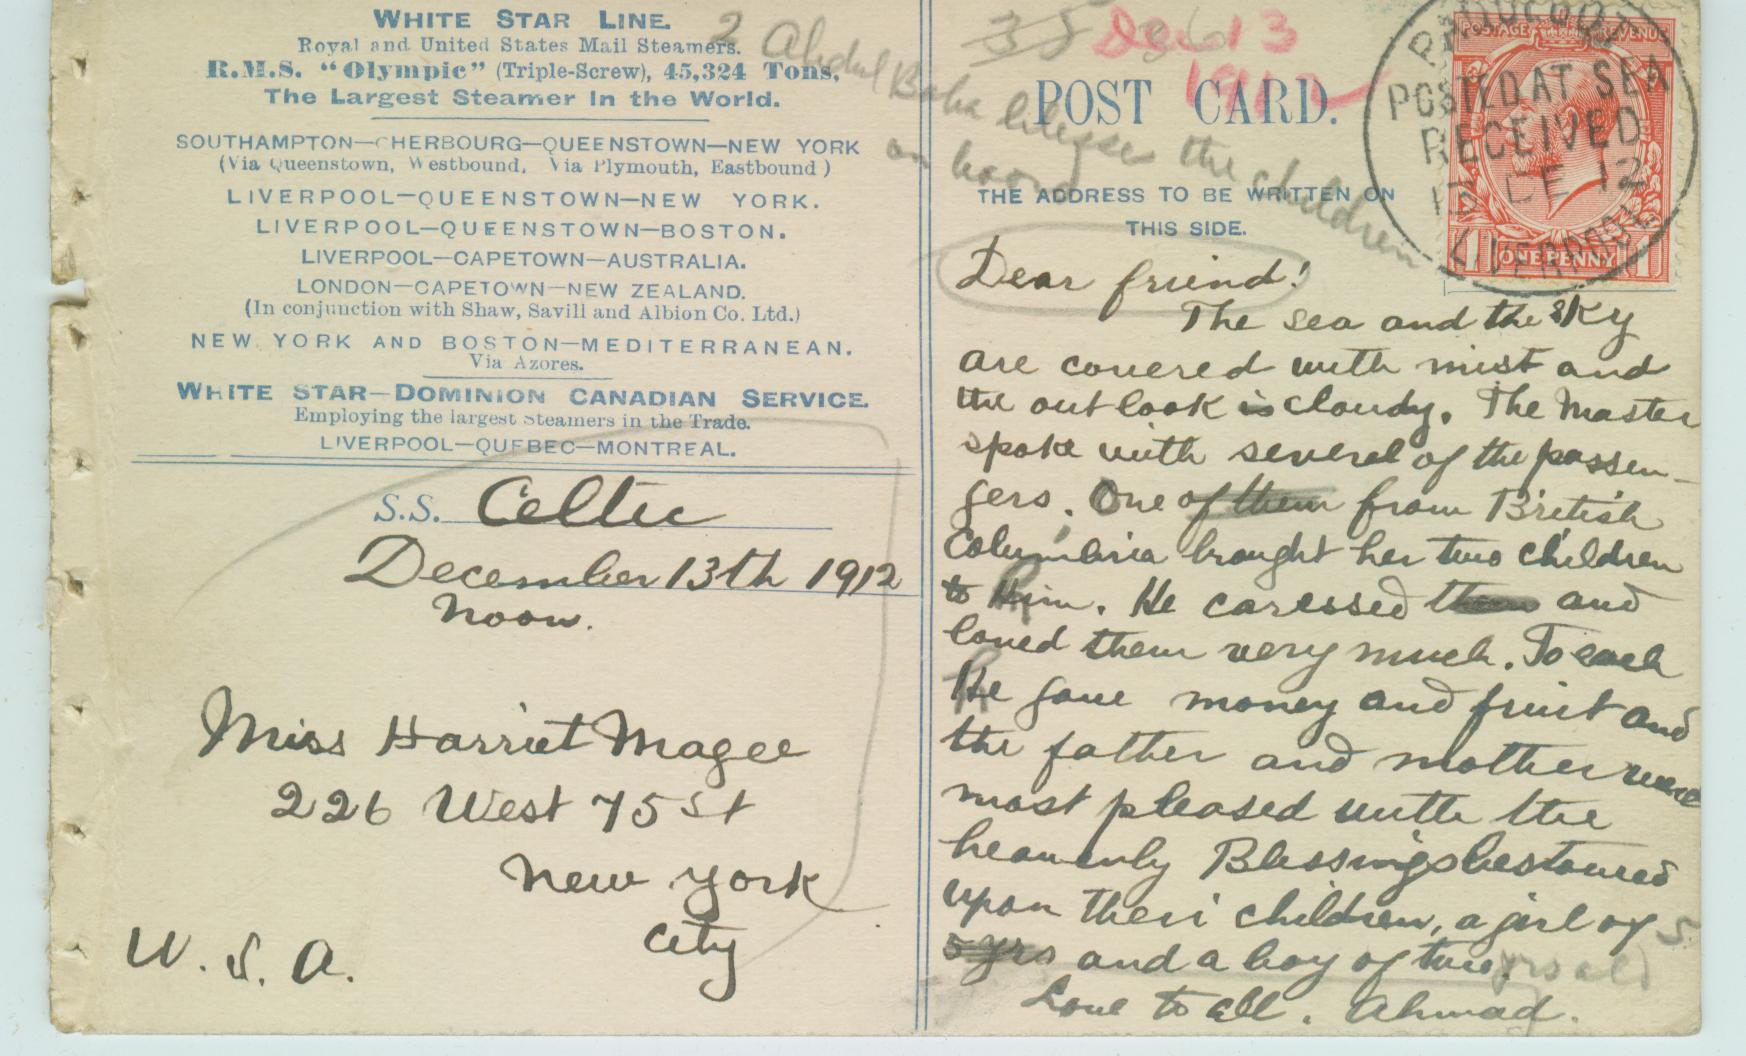 WHITE STAR LINE.
Royal and United States Mail Steamers.
R.M.S. "Olympic" (Triple-Screw), 45,324 Tons,
The Largest Steamer in the World.
SOUTHAMPTON—CHERBOURG—QUEENSTOWN—NEW YORK
(Via Queenstown, Westbound, Via Plymouth, Eastbound)
LIVERPOOL—QUEENSTOWN—NEW YORK.
LIVERPOOL—QUEENSTOWN—BOSTON.
LIVERPOOL—CAPETOWN—AUSTRALIA.
LONDON—CAPETOWN—NEW ZEALAND.
(In conjunction with Shaw, Savill and Albion Co. Ltd.)
NEW YORK AND BOSTON—MEDITERRANEAN.
Via Azores.
WHITE STAR—DOMINION CANADIAN SERVICE.
Employing the largest Steamers in the Trade.
LIVERPOOL—QUEBEC—MONTREAL.
S.S. Celtic
December 13th 1912
Noon.
Miss Harriet Magee
226 West 75 St
New York
City
U. S. A.
2 Abdul Baha blesses the children
on board
35 36
Dec 13
1912
POST CARD.
THE ADDRESS TO BE WRITTEN ON
THIS SIDE.
POSTAGE REVENUE
ONE PENNY
PAQUEBOT
POSTED AT SEA
RECEIVED
13 DE 12
LIVERPOOL
Dear friend!
The sea and the sky
are covered with mist and
the out look is cloudy. The Master
spoke with several of the passen-
gers. One of them from British
Columbia brought her two children
to Him. He caressed them and
loved them very much. To each
He gave money and fruit and
the father and mother were
most pleased with the
heavenly Blessings bestowed
upon their children, a girl of 5
5 yrs and a boy of two. yrs old
Love to all. Ahmad.